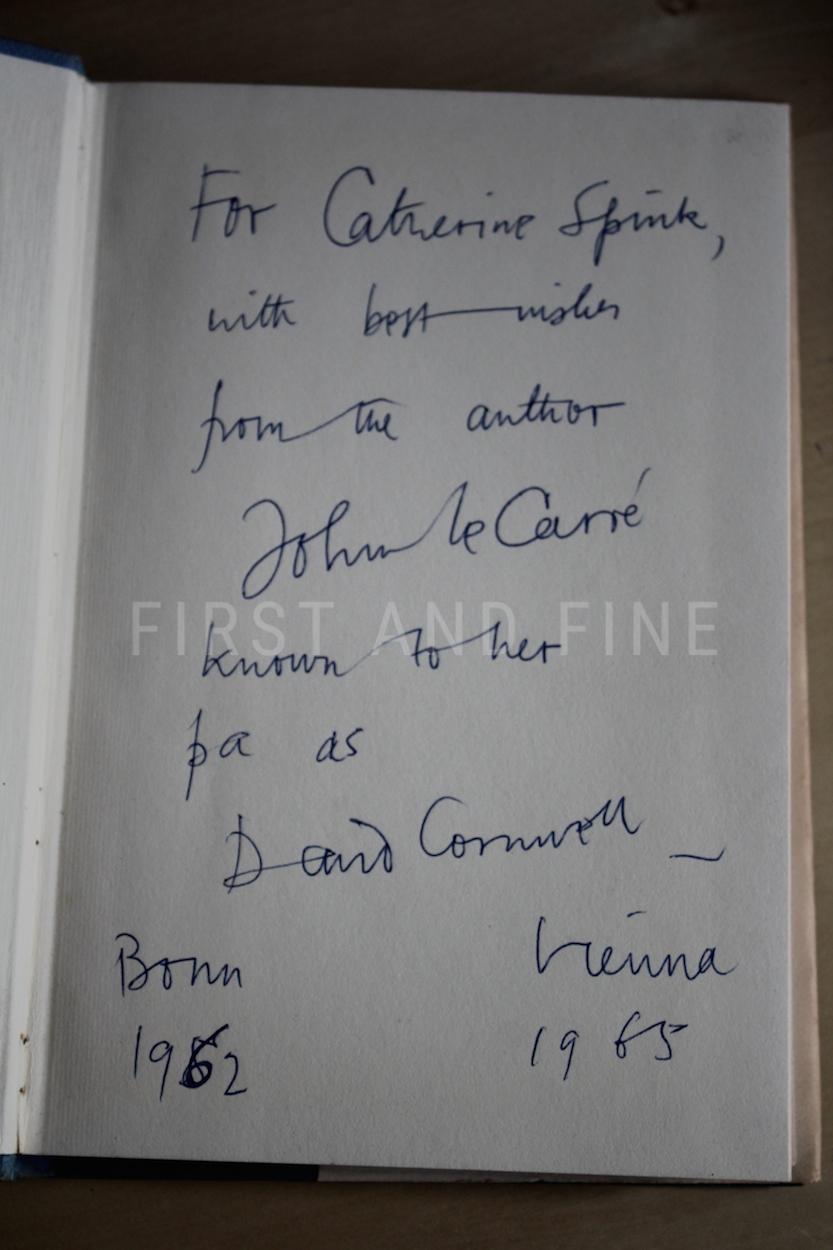 For Catherine Spink,
with best wishes
from the author
John le Carré
FIRST AND FINE
known to her
pa as
David Cornwell —
Bonn Vienna
1962 1965